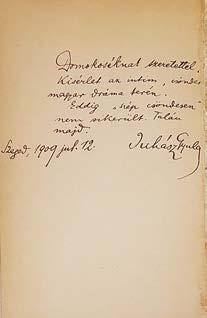 Domokoséknak szeretettel!
Kisérlet az intim, csöndes
magyar dráma terén.
Eddig „szép csöndesen"
nem sikerült. Talán
majd.
Szeged, 1909 jul. 12. Juhász Gyula